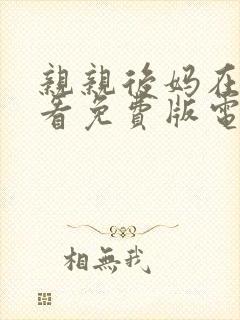 親親後妈在
看免費版電
相無我